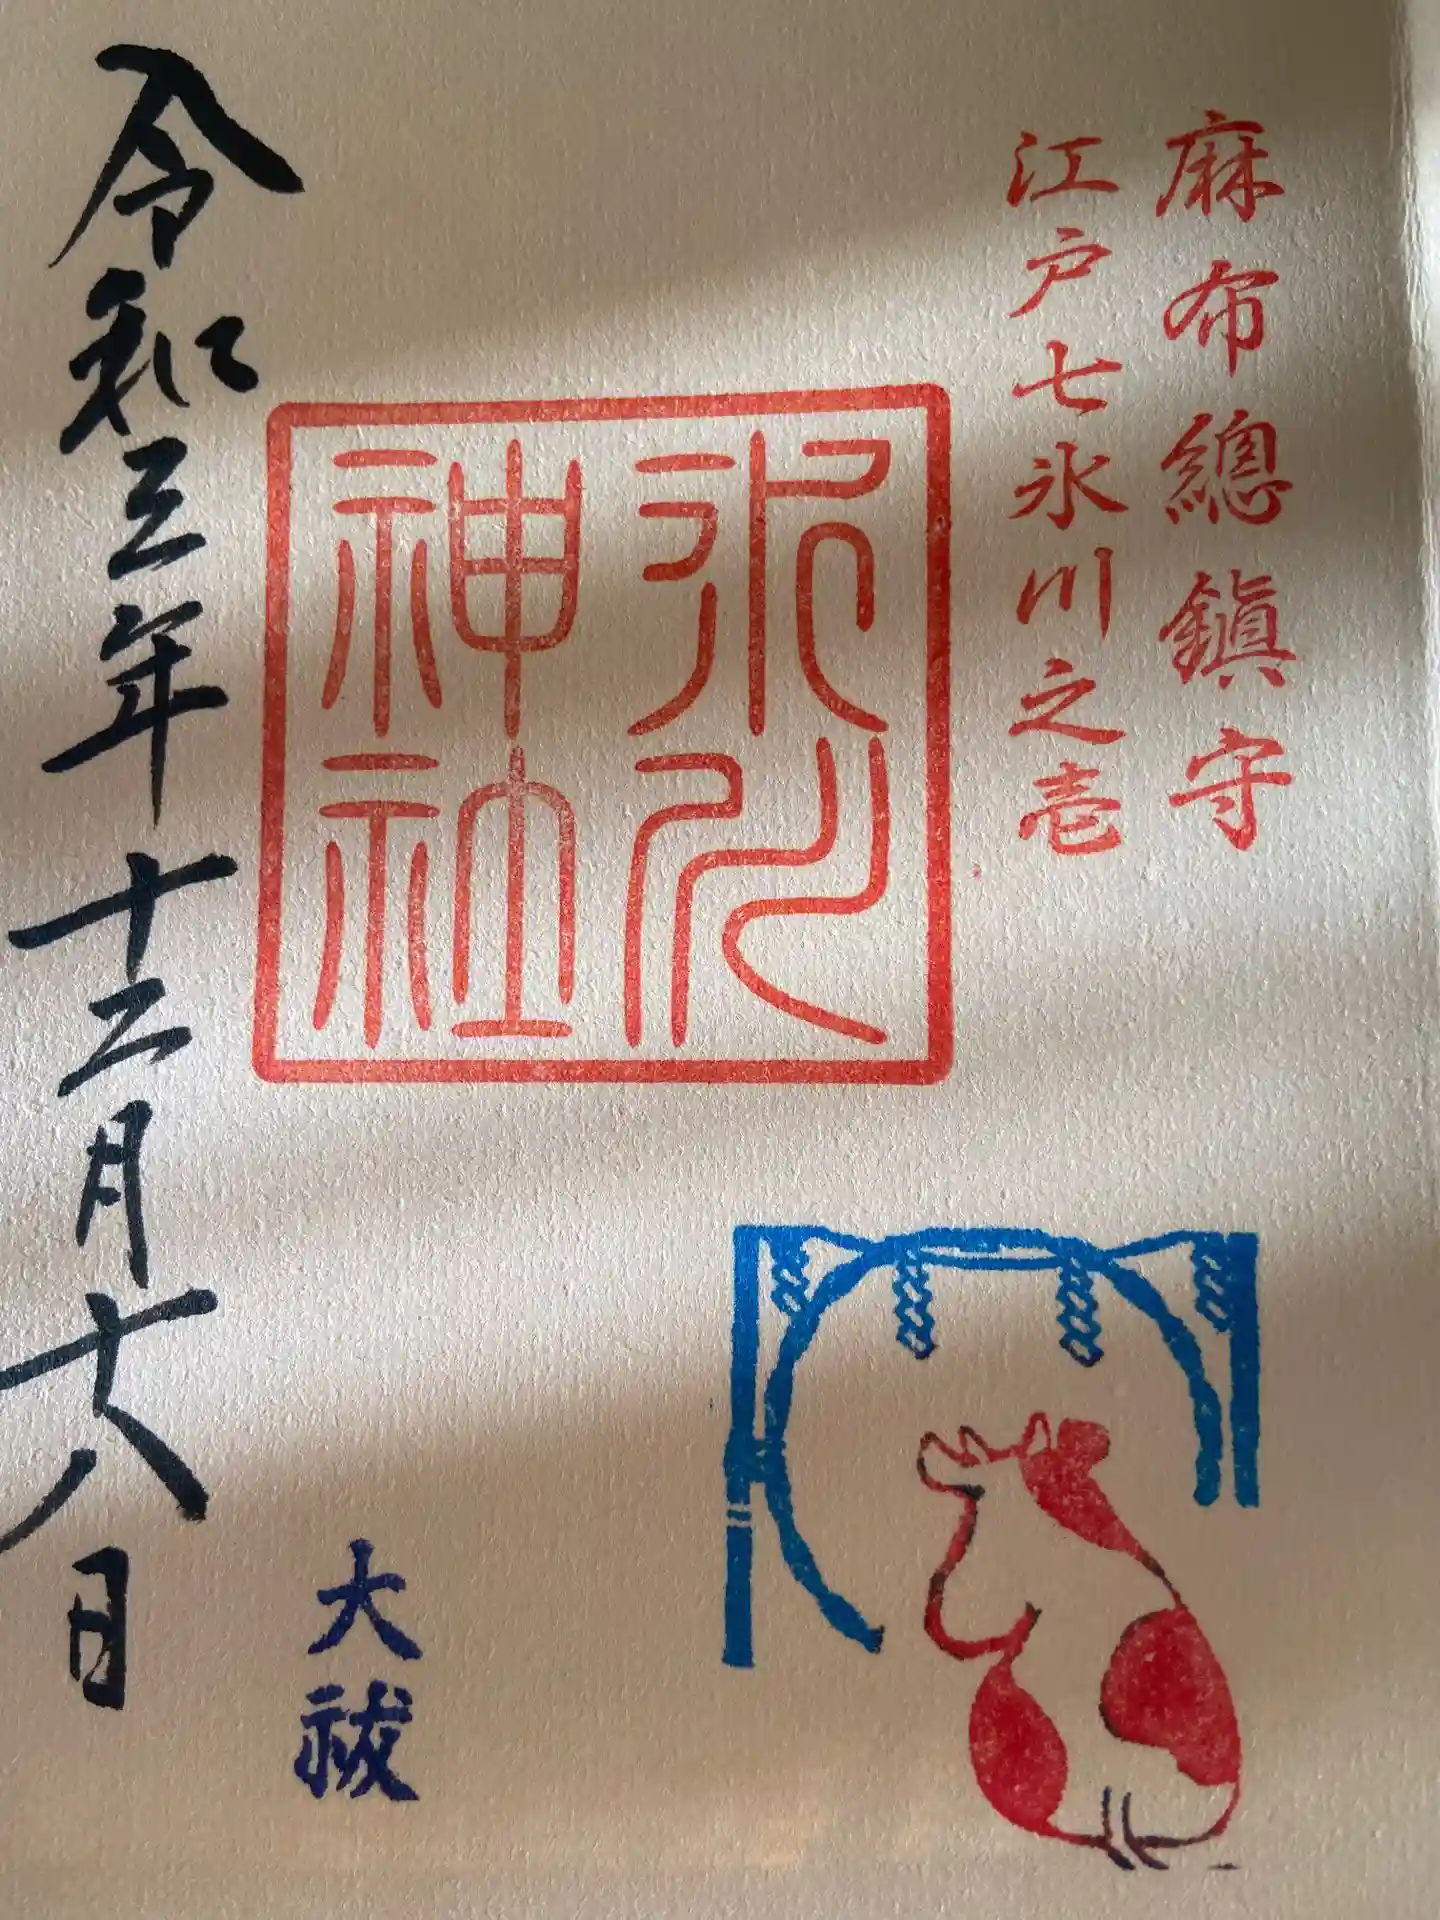 麻布總鎭守
江戸七氷川之壱
氷川
神社
令和三年十二月十八日
大祓